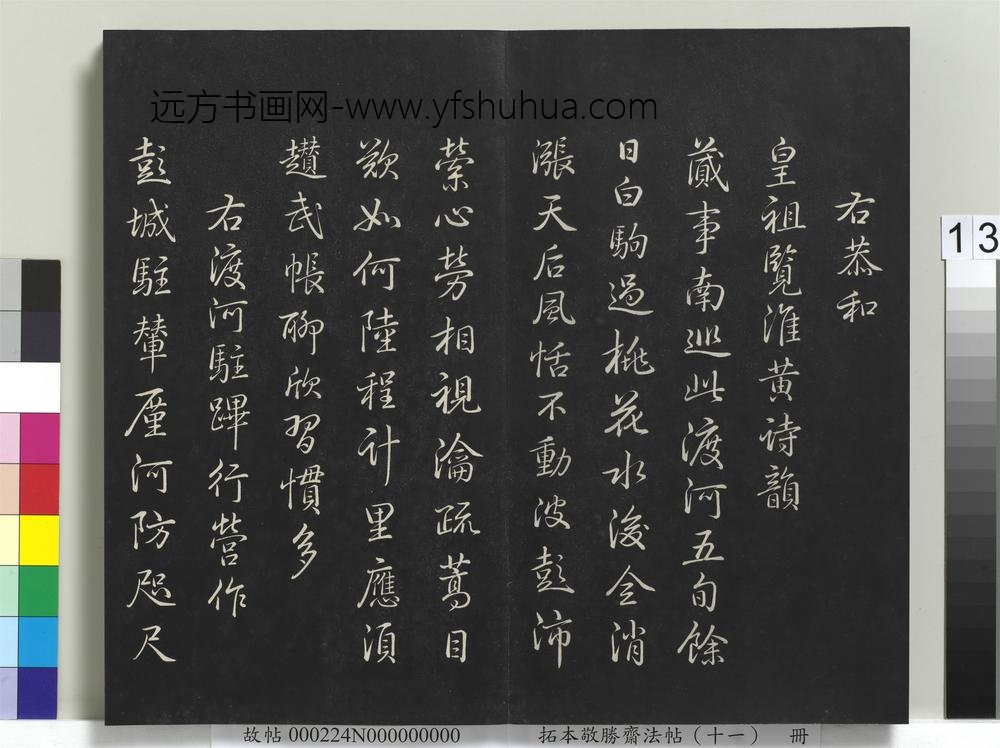 远方书画网-www.yfshuhua.com
右恭和
皇祖覽淮黃詩韻
蕆事南巡此渡河五旬餘
日白駒過桃花水後令消
漲天后風恬不動波彭沛
縈心勞相視瀹疏蒿目
歎如何陸程計里應須
趲武帳聊欣習慣多
右渡河駐蹕行營作
彭城駐輦廑河防咫尺
13
故帖 000224N000000000
拓本敬勝齋法帖（十一） 冊